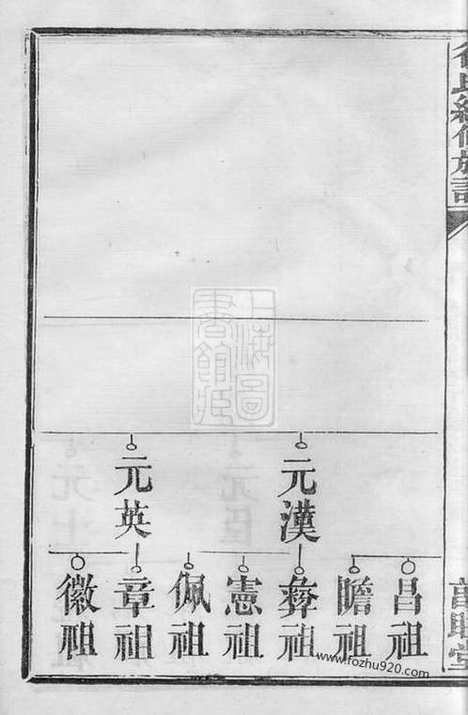 氏續修族譜
元漢
元英
昌祖
瞻祖
彝祖
憲祖
佩祖
章祖
徽祖
上海圖書館藏
www.fozhu920.com